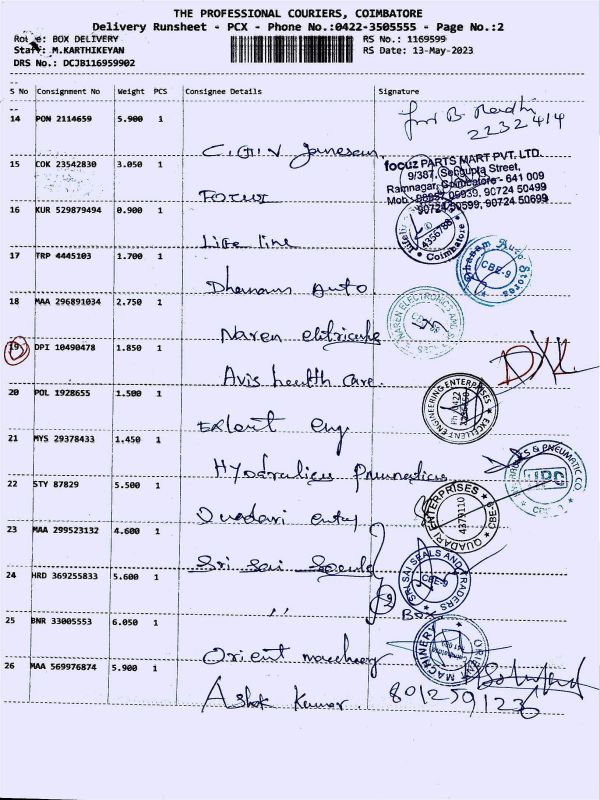 THE PROFESSIONAL COURIERS, COIMBATORE
Delivery Runsheet - PCX - Phone No.:0422-3505555 - Page No.:2
Route: BOX DELIVERY RS No.: 1169599
Staff: M.KARTHIKEYAN RS Date: 13-May-2023
DRS No.: DCJB116959902
S No Consignment No Weight PCS Consignee Details Signature
14 PON 2114659 5.900 1
2232414
C.G.I.V
15 COK 23542830 3.050 1
focuz PARTS MART PVT. LTD.
9/387, Sengupta Street,
Ramnagar, Coimbatore - 641 009
90724 50499
90724 50599, 90724 50699
Focuz
16 KUR 529879494 0.900 1
Coimbatore
Life line
17 TRP 4445103 1.700 1
Dhanam Auto Stores
CBE-9
Dhanam Auto
18 MAA 296891034 2.750 1
NAREN ELECTRONICS AND
Naren
19 DPI 10490478 1.850 1
Avis health care.
20 POL 1928655 1.500 1
EXCELLENT ENGINEERING ENTERPRISES
Exlent eng
21 MYS 29378433 1.450 1
& PNEUMATIC CO
Hydraulics Pneumatics
22 STY 87829 5.500 1
QUADARI ENTERPRISES CBE-9
4379110
Quadari
23 MAA 299523132 4.600 1
SRI SAI SEALS AND TRADERS
CBE-9
Sri Sai
24 HRD 369255833 5.600 1
,, 2 Box
25 BNR 33005553 6.050 1
ORIENT MACHINERY
Orient
26 MAA 569976874 5.900 1
Ashok Kumar.